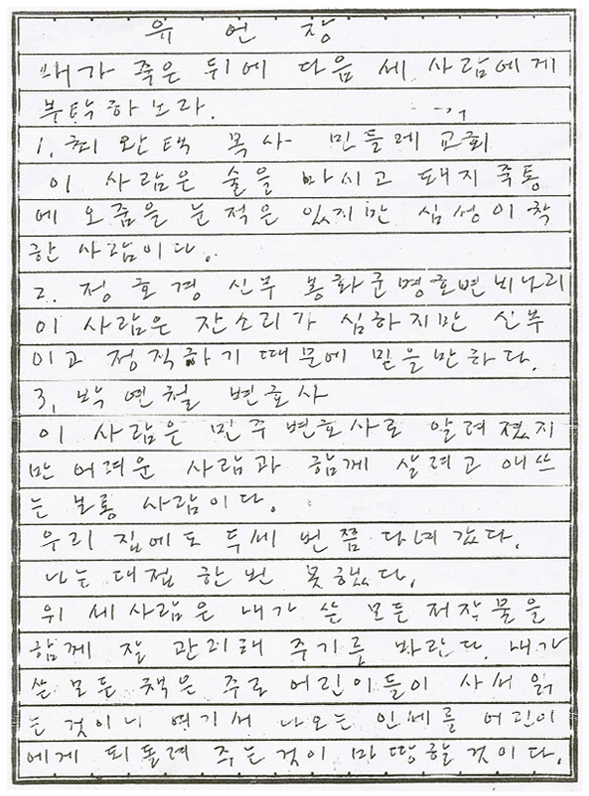 유언장
내가 죽은 뒤에 다음 세 사람에게
부탁하노라.
1. 최완택 목사 민들레 교회
이 사람은 술을 마시고 돼지 죽통
에 오줌을 눈 적은 있지만 심성이 착
한 사람이다.
2. 정호경 신부 봉화군 명호면 비나리
이 사람은 잔소리가 심하지만 신부
이고 정직하기 때문에 믿을만 하다.
3. 박연철 변호사
이 사람은 민주변호사로 알려졌지
만 어려운 사람과 함께 살려고 애쓰
는 보통 사람이다.
우리 집에도 두세 번쯤 다녀갔다.
나는 대접 한 번 못했다.
위 세 사람은 내가 쓴 모든 저작물을
함께 잘 관리해 주기를 바란다. 내가
쓴 모든 책은 주로 어린이들이 사서 읽
는 것이니 여기서 나오는 인세를 어린이
에게 되돌려 주는 것이 마땅할 것이다.